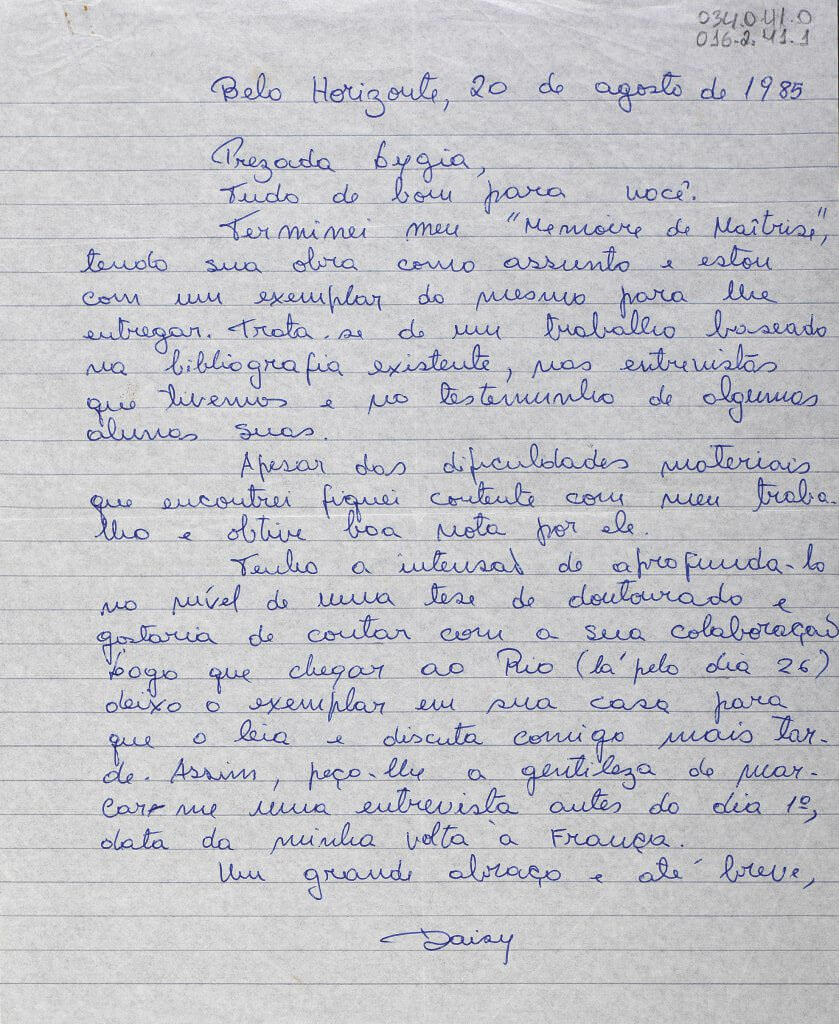 034.041.0
016-2.41.1
Belo Horizonte, 20 de agosto de 1985
Prezada Lygia,
Tudo de bom para você.
Terminei meu "Memoire de Maîtrise",
tendo sua obra como assunto e estou
com um exemplar do mesmo para lhe
entregar. Trata-se de um trabalho baseado
na bibliografia existente, nas entrevistas
que tivemos e no testemunho de algumas
alunas suas.
Apesar das dificuldades materiais
que encontrei fiquei contente com meu traba-
lho e obtive boa nota por ele.
Tenho a intensão de aprofunda-lo
no nível de uma tese de doutourado e
gostaria de contar com a sua colaboração
Logo que chegar ao Rio (lá pelo dia 26)
deixo o exemplar em sua casa para
que o leia e discuta comigo mais tar-
de. Assim, peço-lhe a gentileza de mar-
car-me uma entrevista antes do dia 1º,
data da minha volta à França.
Um grande abraço e até breve,
Daisy